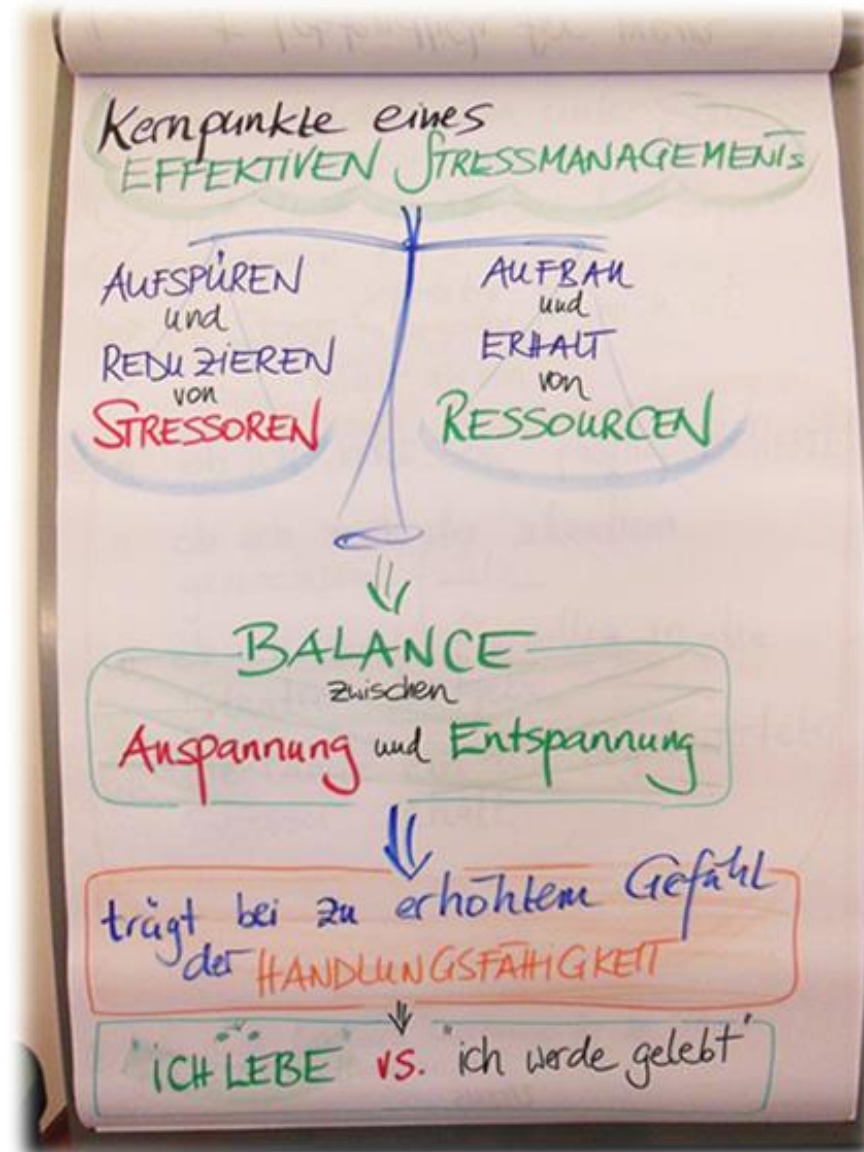 Kernpunkte eines
EFFEKTIVEN STRESSMANAGEMENTs
AUFSPÜREN
und
REDUZIEREN
von
STRESSOREN
AUFBAU
und
ERHALT
von
RESSOURCEN
BALANCE
zwischen
Anspannung und Entspannung
trägt bei zu erhöhtem Gefühl
der HANDLUNGSFÄHIGKEIT
"ICH LEBE" vs. "ich werde gelebt"